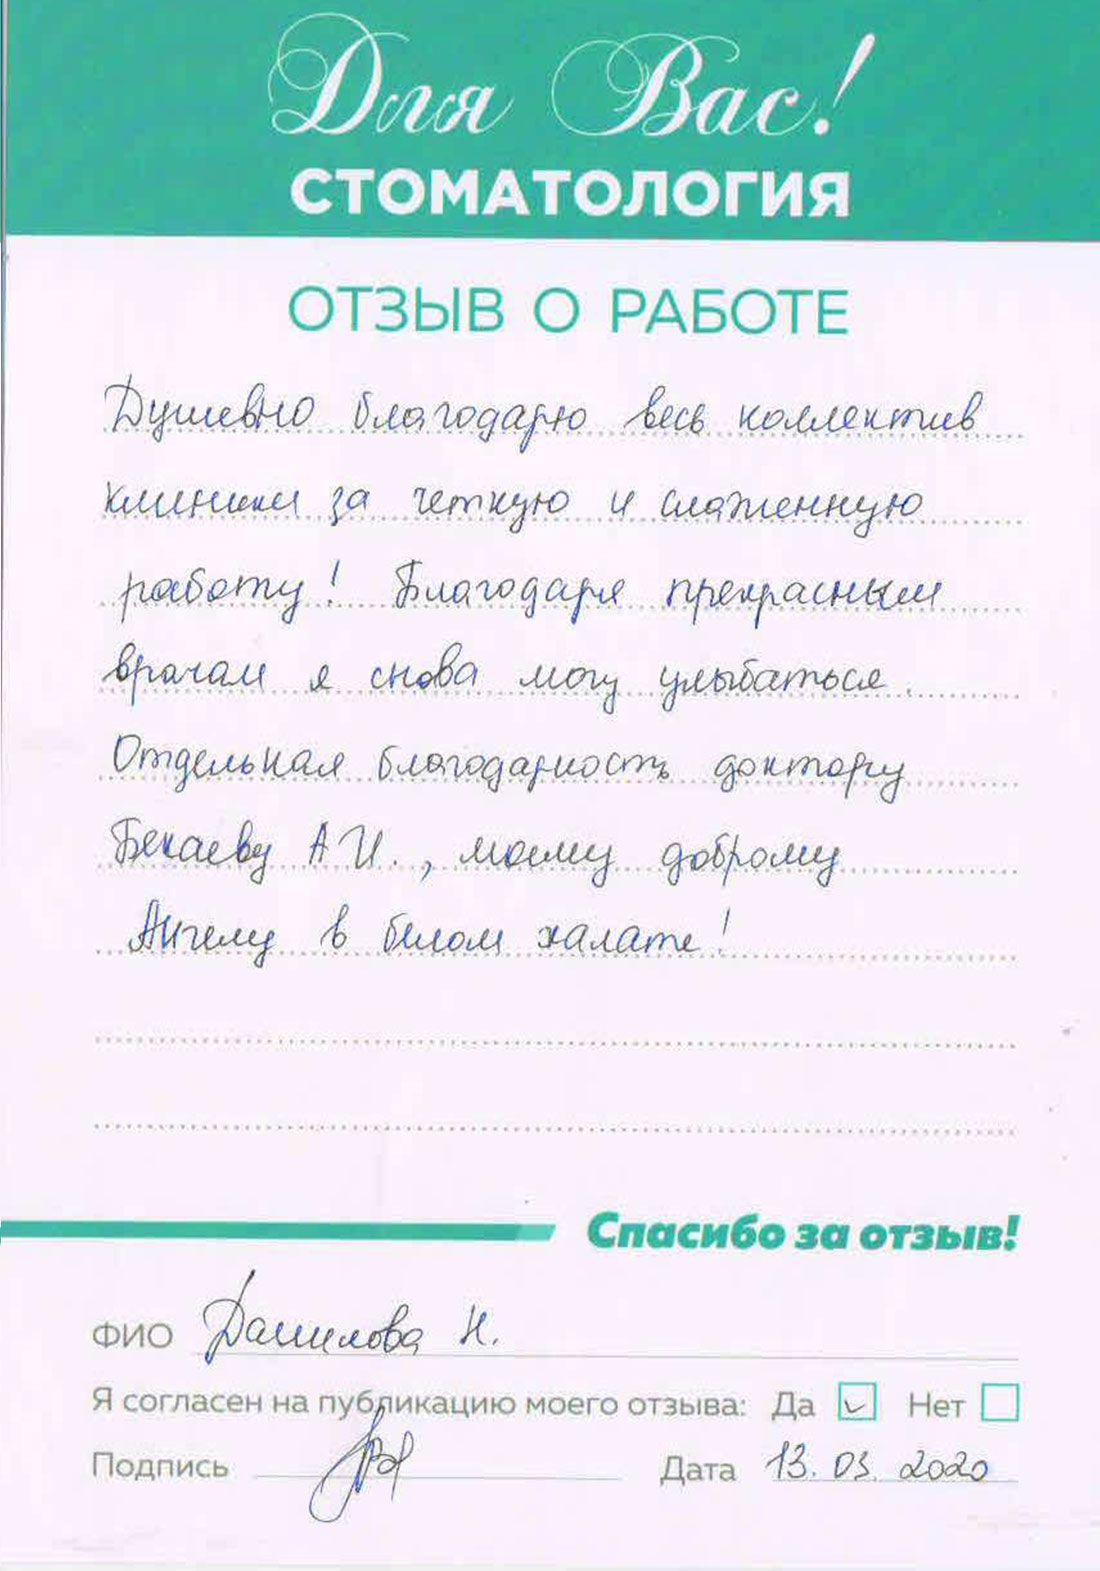 Для Вас!
СТОМАТОЛОГИЯ
ОТЗЫВ О РАБОТЕ
Душевно благодарю весь коллектив
клиники за четкую и слаженную
работу! Благодаря прекрасным
врачам я снова могу улыбаться.
Отдельная благодарность доктору
Бекаеву А И., моему доброму
Ангелу в белом халате!
Спасибо за отзыв!
ФИО Данилова Н.
Я согласен на публикацию моего отзыва: Да Нет
Подпись Дата 13.03.2020